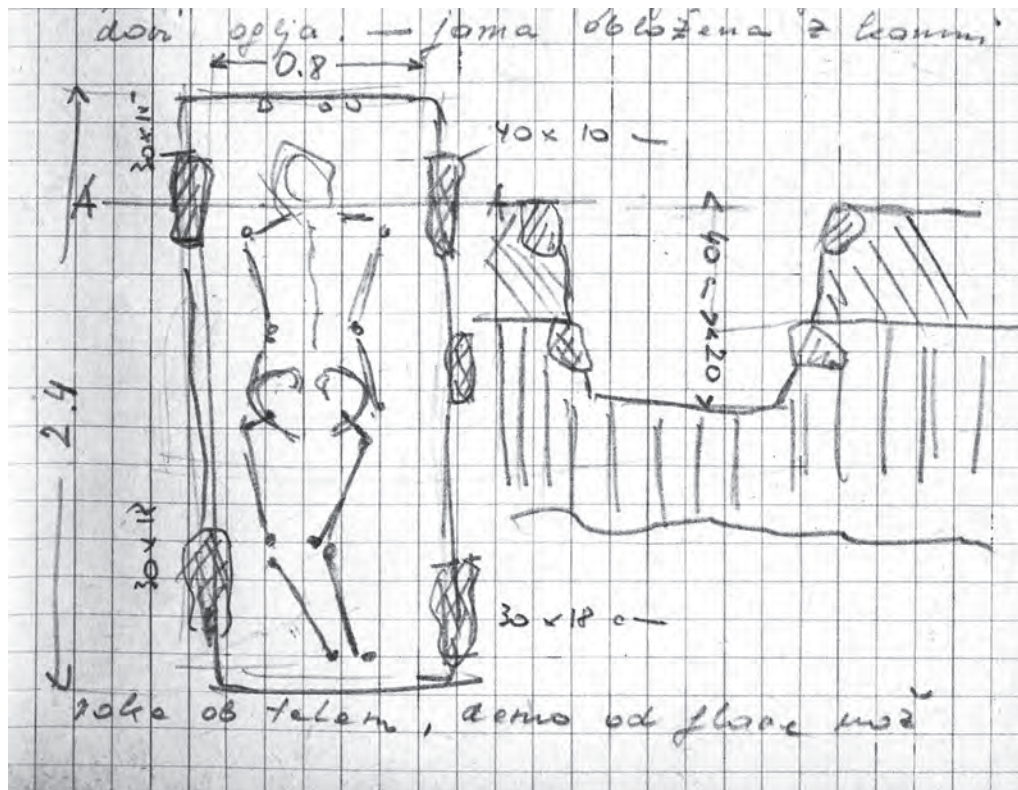 oglja. — jama obložena z kamni
0.8
30x15
40 x 10 c—
A
A
40 c—
20
2.4
30x18
30 x 18 c—
roke ob telem, desno od glave nož